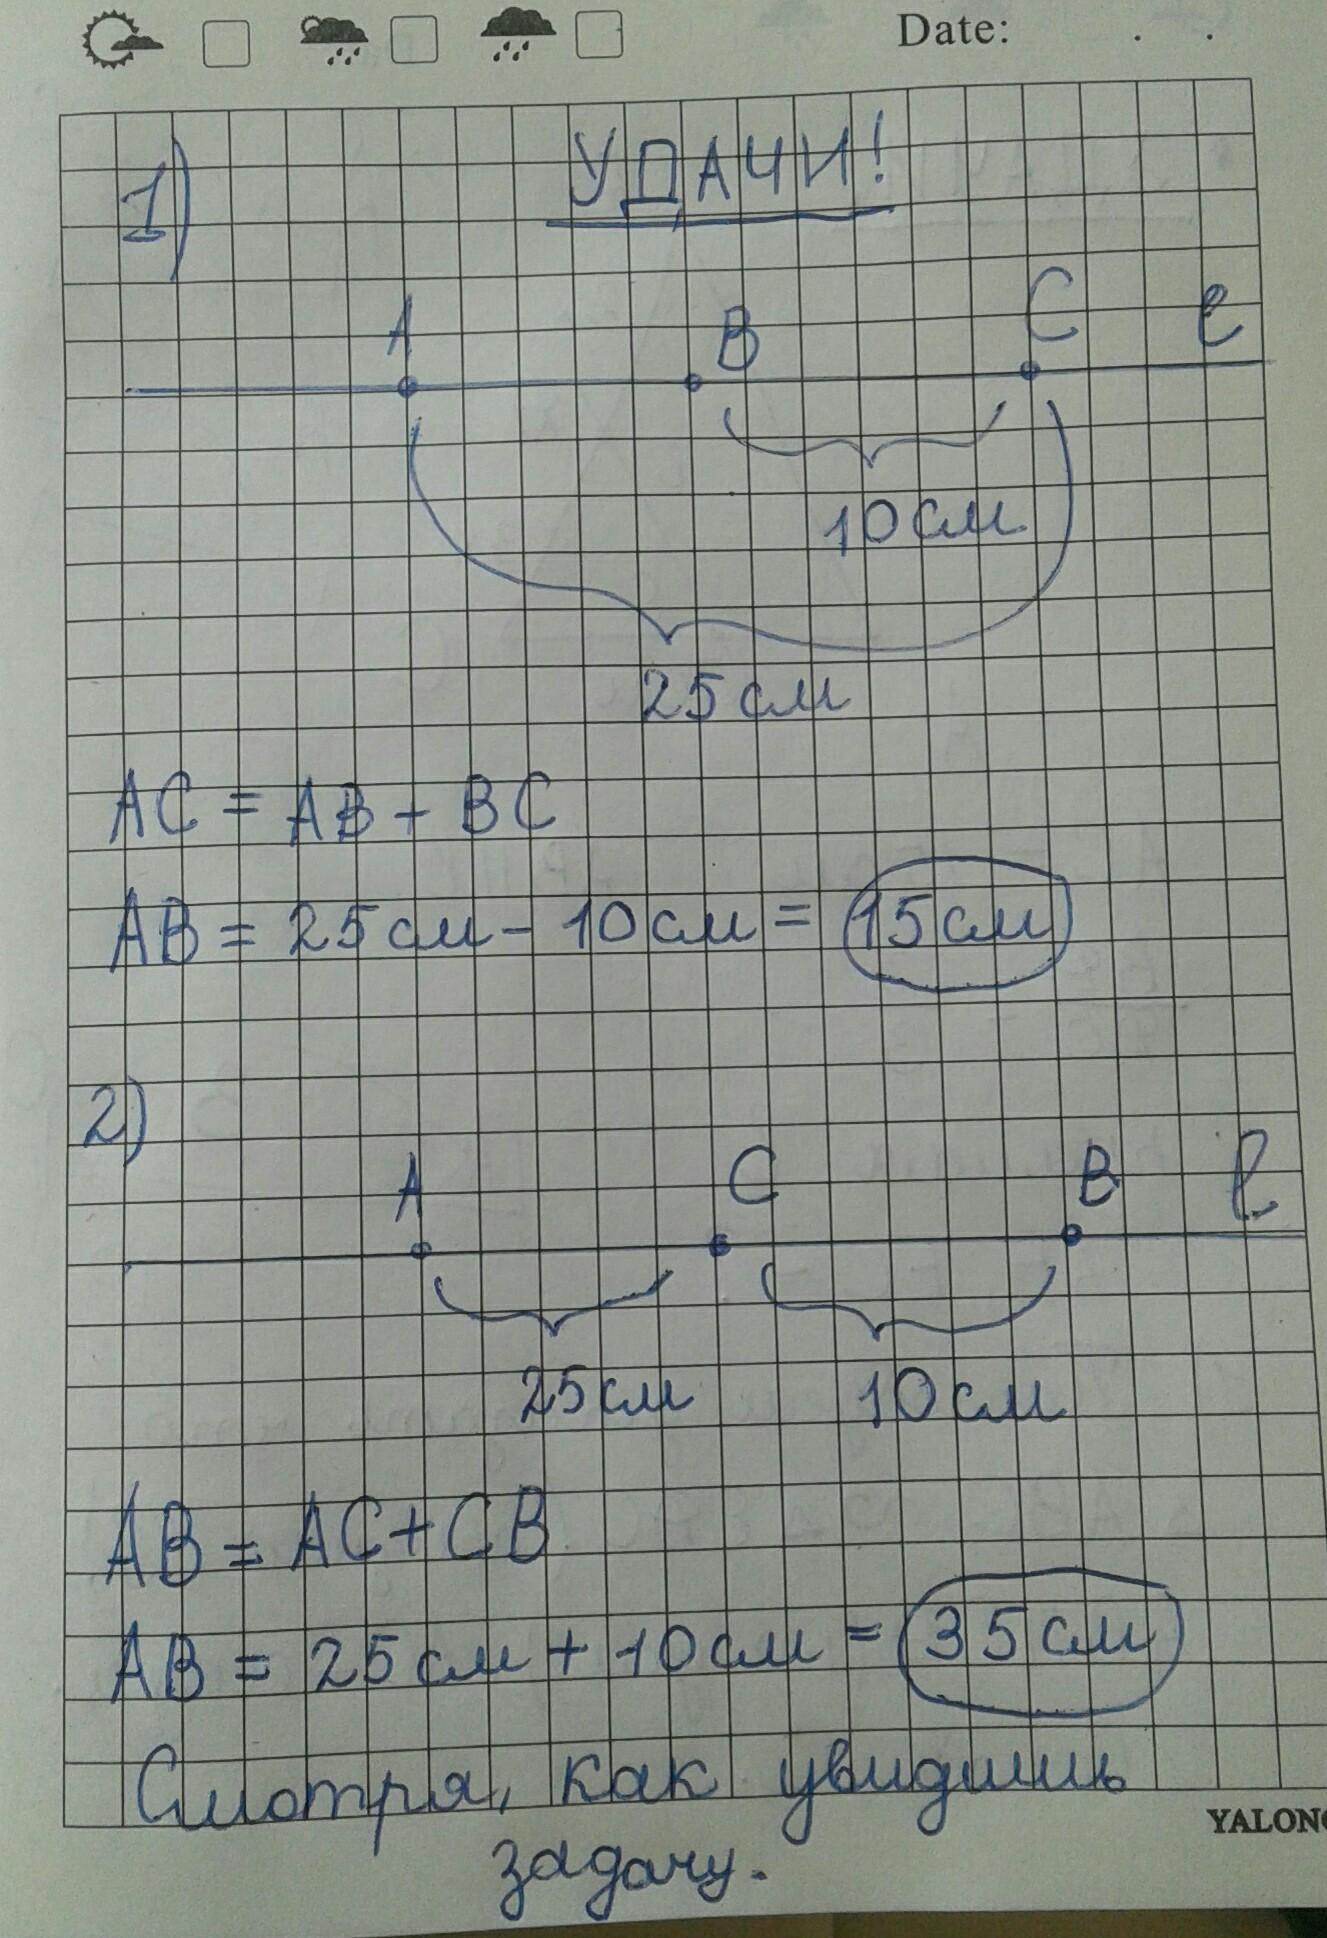 Date: . .
1) УДАЧИ!
A B C l
10 см
25 см
AC = AB + BC
AB = 25 см - 10 см = 15 см
2)
A C B l
25 см 10 см
AB = AC + CB
AB = 25 см + 10 см = 35 см
Смотря, как увидишь
YALONG
задачу.